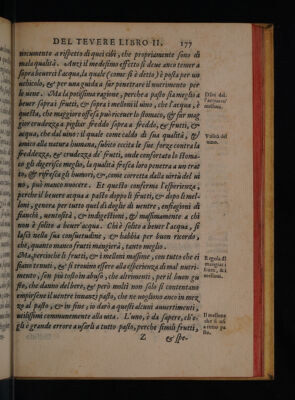 DEL TEVERE LIBRO II. 177
tincumento a rispetto di quei cibi, che propriamente sono di
mala qualità. Anzi il medesimo effetto si deue anco temer a
sopra beuerci l'acqua, la quale (come si è detto) è posta per un
uehicolo, & per una guida a far penetrare il nutrimento per
le uene. Ma la potissima ragione, perche a pasto sia meglio a
beuer sopra i frutti, & sopra i melloni il uino, che l'acqua, è
questa, che maggiore offesa può riceuer lo stomaco, & far mag
gior crudezza a pigliar freddo sopra freddo, & frutti, &
acqua, che dal uino: il quale come caldo di sua qualità, &
amico alla natura humana, subito eccita le sue forze contra la
freddezza, & crudezza de' frutti, onde confortato lo stoma-
co gli digerisce meglio, la qualità fresca loro penetra a moderato
to, & rifresca gli humori, &, come corretta dalla uirtù del ui
no, può manco nuocere. Et questo conferma l'esperienza,
perche il beuere acqua a pasto doppo li frutti, & dopo li mel-
loni, genera per tutto quel dì doglie di uentre, enfiagioni di
fianchi, uentosità, & indigestioni, & massimamente a chi
non è solito a beuer' acqua. Chi è solito a beuer l'acqua, si
lassi nella sua consuetudine, & habbia per buon ricordo,
che, quanto manco frutti mangierà, tanto meglio.
Ma, percioche li frutti, & i melloni massime, con tutto che ci
siano tenuti, & si trouino essere alla esperienza di mal nutri-
mento, sin più tosto in abuso, che altrimenti, per il luoro pa-
sto, che danno del bere, & però molti non solo si contentano
empirsene il uentre innanzi pasto, che ne uogliono anco in mez
zo al pasto, & in fine, io darò a questi alcuni auuertimenti,
utilissimi communemente alla uita. L'uno, è da sapere, ch'e-
gli è grande errore a usarli a tutto pasto, perche simili frutti,
Z & spe-
Vsifici del
uino.
Regola di
mangiare i
frutti, & i
melloni.
Il mellone